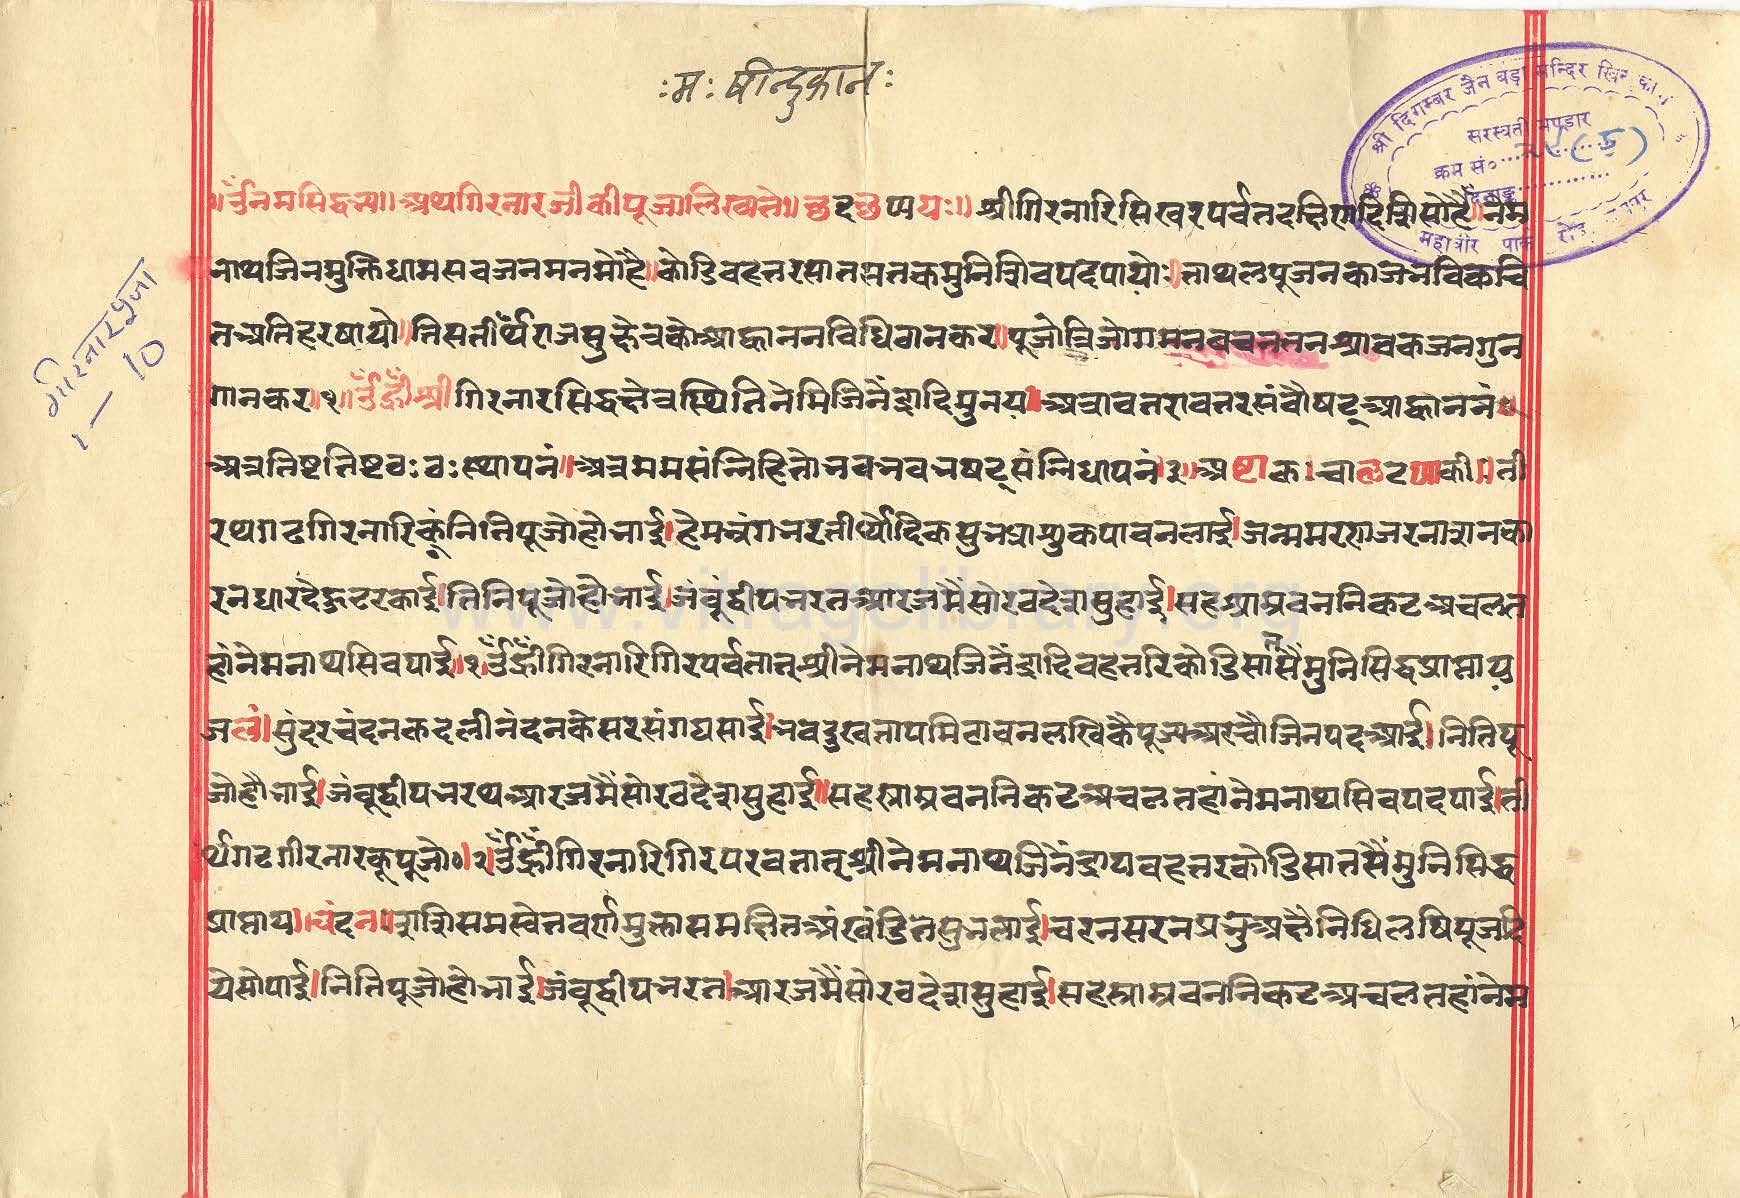 :म: षीन्दुकान:
श्री दिगम्बर जैन बड़ा मन्दिर
सरस्वती भण्डार
क्रम सं०
दिनाङ्क
महावीर पार्क रोड
गीरनारपूजा
१—10
॥ॐनमसिद्धभ्य॥ अथगिरनारजीकीपूजालिख्यते॥ छदछप्पयः॥ श्रीगिरनारिसिखरपर्वतदक्षिणदिशिसोहै॥नेम
नाथजिनमुक्तिधामसबजनमनमोहै॥कोडिबहतरसातसतकमुनिशिवपदपायो॥ताथलपूजनकाजभविकचि
तअतिहरषायो॥तिसतीर्थराजसुक्षेत्रकोआह्वाननविधिठानकर॥पूजोत्रिजोगमनवचनतनश्रावकजनगुन
गानकर॥१॥ॐह्रींश्रीगिरनारसिद्धक्षेत्रस्थितिनेमिजिनेंद्रादिमुनय॥अत्रावतरावतरसंवौषट्आह्वाननं॥
अत्रतिष्टतिष्टठः ठः स्थापनं॥अत्रममसंन्निहितोभवभवभषट्संन्निधापनं॥३॥अष्टाकः चालछटप्पाकी॥ती
रथगढगिरनारिकूंनितिपूजोहोभाई॥हेमभृंगभरतीर्थोदिकसुभप्राशुकपावनलाई॥जन्ममरणजरनाशनका
रनधारदैहुढरकाई॥नितिपूजोहौभाई॥जंबूद्वीपभरतआरजमैंसोरठदेशसुहाई॥सहश्राम्रवननिकटअचलत
हांनेमनाथसिवपाई॥१॥ॐह्रींगिरनारिगिरपर्वतातश्रीनेमनाथजिनेंद्रादिबहतरिकोडिसातसैमुनिसिद्धप्राप्ताय
जलं॥सुंदरचंदनकदलीनंदनकेसरसंगघसाई॥भवदुखतापमिटावनलखिकैपूजअरचौजिनपदआई॥नितिपू
जोहौभाई॥जंबूद्वीपभरथआरजमैंसोरठदेशसुहाई॥सहस्राम्रवननिकटअचलतहांनेमनाथसिवपदपाई॥ती
र्थगढगीरनारकूपूजो०॥२॥ॐह्रींगिरनारिगिरपरवतातश्रीनेमनाथजिनेंद्रायबहतरकोडिसातसैंमुनिसिद्ध
प्राप्ताय॥चंदन॥शशिसमस्वेतवर्णमुक्तासमतितअंखंडितसुभलाई॥चरनसरनप्रभुअक्षैनिधिलषिपूजहि
येसोपाई॥नितिपूजोहौभाई॥जंबूद्वीपभरत॥आरजमैंसोरठदेशसुहाई॥सहस्राम्रवननिकटअचलतहांनेम
www.vitragelibrary.org